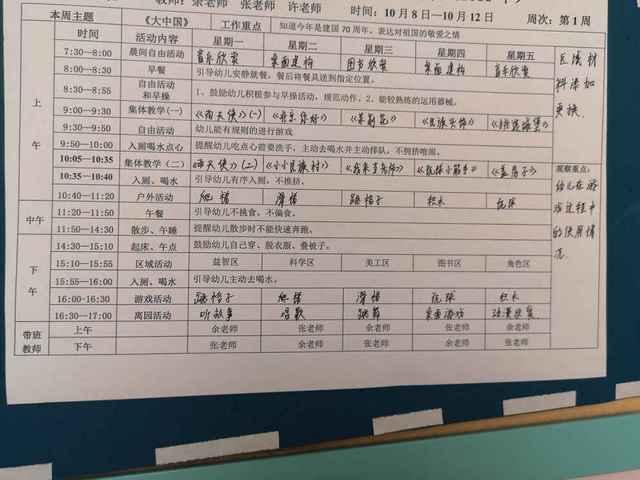 教师：余老师 张老师 许老师 时间：10月8日—10月12日 周次：第1周
本周主题 《大中国》 工作重点 知道今年是建国70周年、表达对祖国的敬爱之情
时间 活动内容 星期一 星期二 星期三 星期四 星期五
上午
7:30—8:00 晨间自由活动 音乐欣赏 桌面建构 图书欣赏 桌面建构 音乐欣赏
8:00—8:30 早餐 引导幼儿安静就餐，餐后将餐具送到指定位置。
8:30—8:55 自由活动和早操 1、鼓励幼儿积极参与早操活动，规范动作。2、能较熟练的运用器械。
9:00—9:30 集体教学(一) 《雨天使》(一) 《北京你好》 《茉莉花》
9:30—9:50 自由活动 幼儿能有规则的进行游戏
9:50—10:00 入厕喝水点心 提醒幼儿吃点心前要洗手，主动去喝水并主动排队，不拥挤喧闹。
10:05—10:35 集体教学（二） 《雨天使》(二) 《盖房子》
10:35—10:40 入厕、喝水 引导幼儿有序入厕，不推挤。
10:40—11:20 户外活动 滑梯 跳格子 积木 玩球
中午
11:20—11:50 午餐 引导幼儿不挑食、不偏食。
11:50—14:30 散步、午睡 提醒幼儿散步时不能快速奔跑。
下午
14:30—15:10 起床、午点 鼓励幼儿自己穿、脱衣服、叠被子。
15:10—15:55 区域活动 益智区 科学区 美工区 图书区 角色区
15:55—16:00 入厕、喝水 引导幼儿主动去喝水。
16:00-16:30 游戏活动 跳格子 滑梯 玩球 积木
16:30—17:00 离园活动 听故事 唱歌 跳舞 桌面游戏 动漫欣赏
带班教师
上午 余老师 张老师 余老师 张老师 余老师
下午 张老师 余老师 张老师 余老师 张老师
区域材
料添加
更换.
观察重点：
幼儿在游
戏过程中
的使用情
况